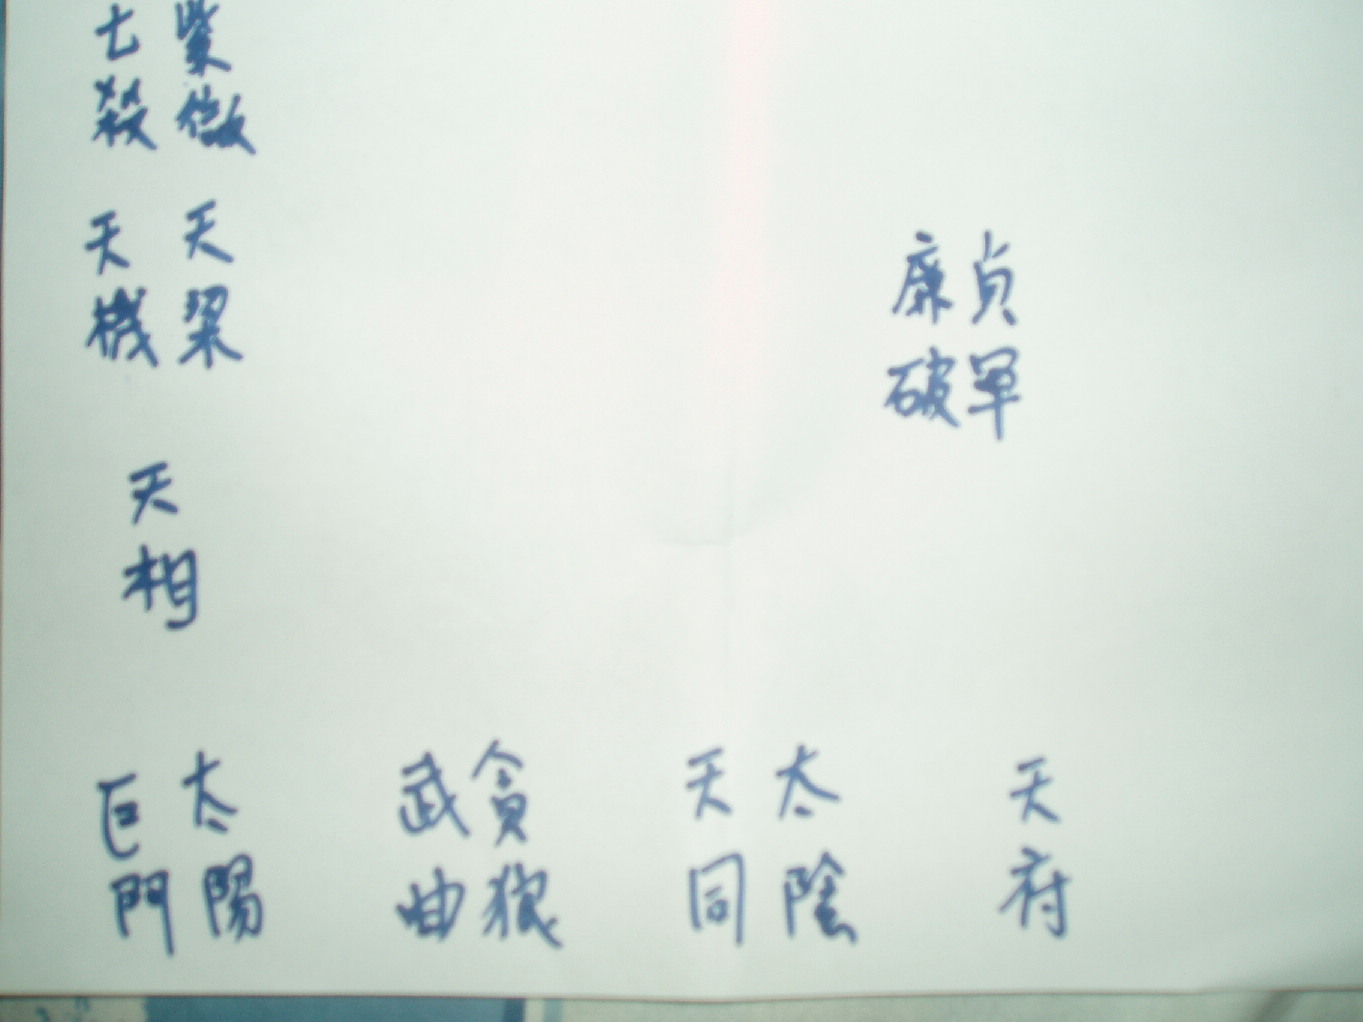 紫微
七殺
天梁
天機
廉貞
破軍
天相
太陽
巨門
貪狼
武曲
太陰
天同
天府